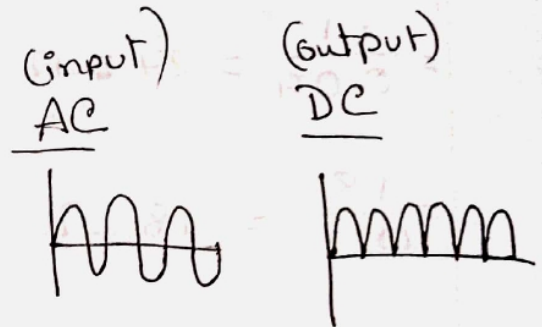 (input)
AC
(output)
DC